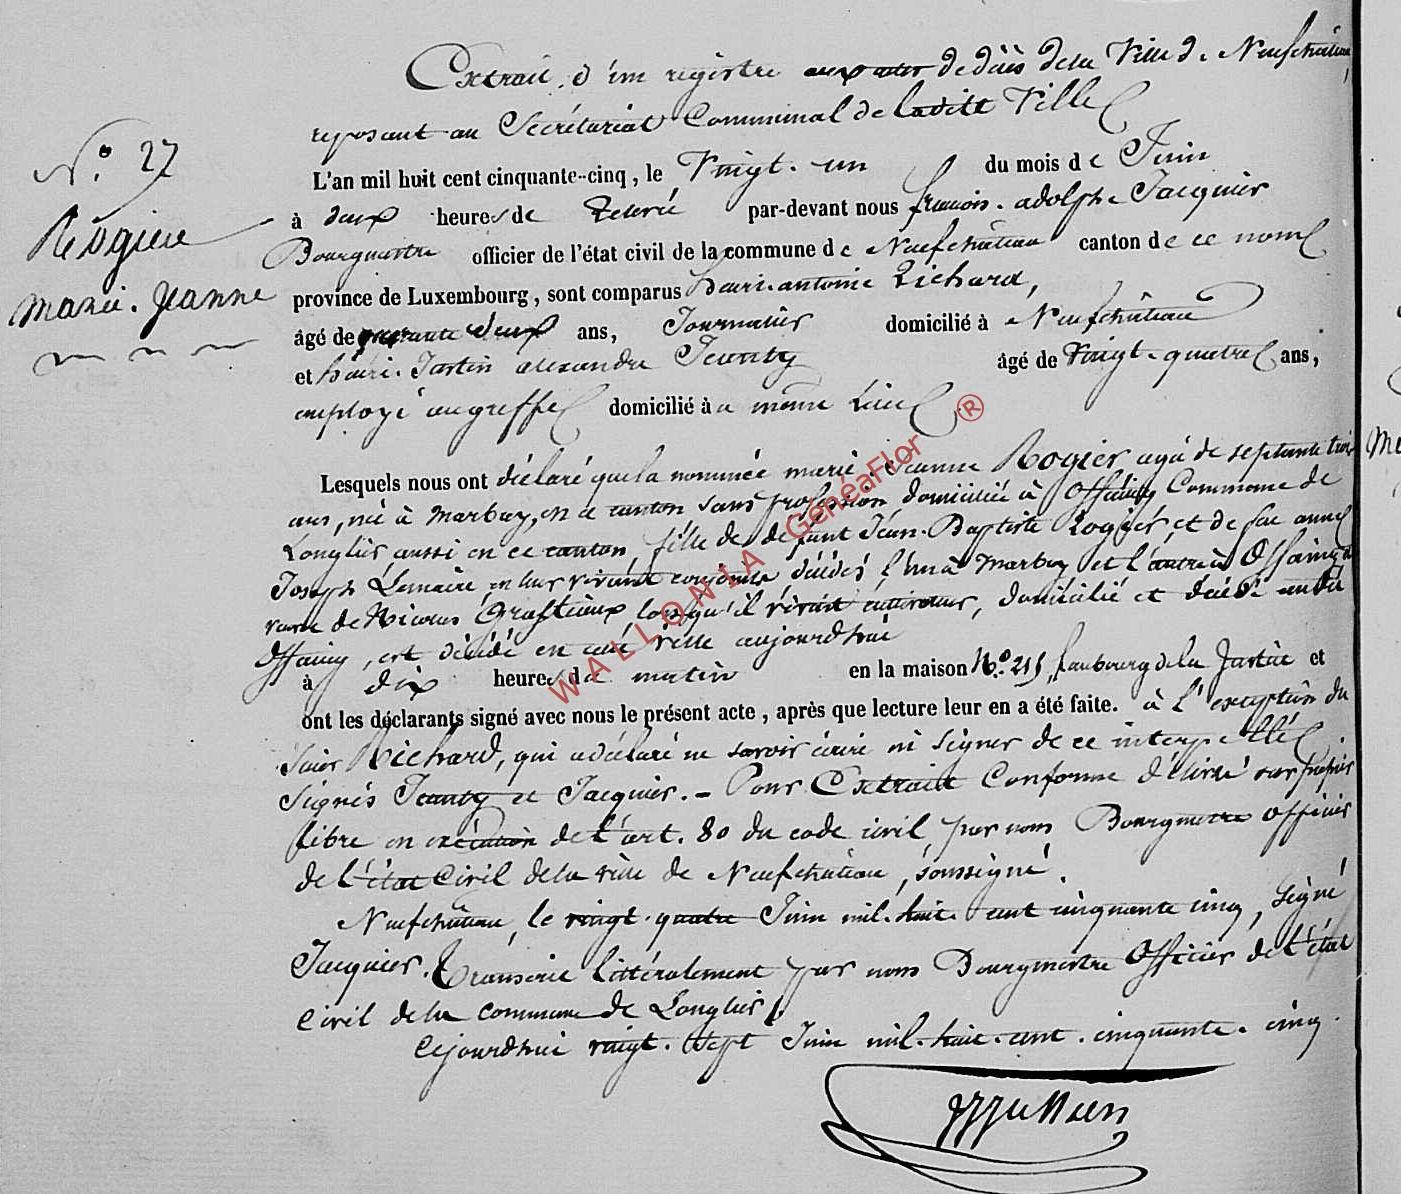 Extrait d'un registre aux actes de décès de la Ville de Neufchâteau,
reposant au Secrétariat Communal de ladite Ville
N.° 27
Rogier
Marie. Jeanne
L'an mil huit cent cinquante-cinq, le Vingt. un du mois de Juin
à deux heures de relevée par-devant nous françois. adolphe Jacquier
Bourgmestre officier de l'état civil de la commune de Neufchâteau canton de ce nom
province de Luxembourg, sont comparus henri. antoine Richard,
âgé de quarante deux ans, Journalier domicilié à Neufchâteau
et henri. Justin alexandre Jeanty âgé de Vingt. quatre ans,
employé au greffe domicilié à même Lieu
Lesquels nous ont déclaré que la nommée marie. Jeanne Rogier agée de septante trois
ans, née à Marbay, en ce canton sans profession domiciliée à Offaing Commune de
Longlier aussi en ce canton, fille de défunt Jean. Baptiste Rogier et de feue anne
Joseph Lemaire, en leur vivant conjoints, décédés l'un à Marbay et l'autre à Offaing,
veuve de Nicolas lorsqu'il vivait cultivateur, domicilié et décédé audit
Offaing, est décédée en cette ville aujourd'hui
à dix heures du matin en la maison N.° 215, faubourg de la Justice et
ont les déclarants signé avec nous le présent acte, après que lecture leur en a été faite. à l'exception du
sieur Richard, qui a déclaré ne savoir écrire ni signer de ce interpellé
Signés Jeanty et Jacquier. - Pour Extrait Conforme délivré sur papier
libre en exécution de l'art. 80 du code civil, par nous Bourgmestre Officier
de l'état Civil de la ville de Neufchâteau, soussigné.
Neufchâteau, le vingt. quatre Juin mil. huit. cent cinquante cinq, Signé
Jacquier. Transcrit littéralement par nous Bourgmestre Officier de l'état
Civil de la commune de Longlier,
Cejourd'hui vingt. sept Juin mil. huit. cent. cinquante. cinq.
WALLONIA GenéaFlor ®